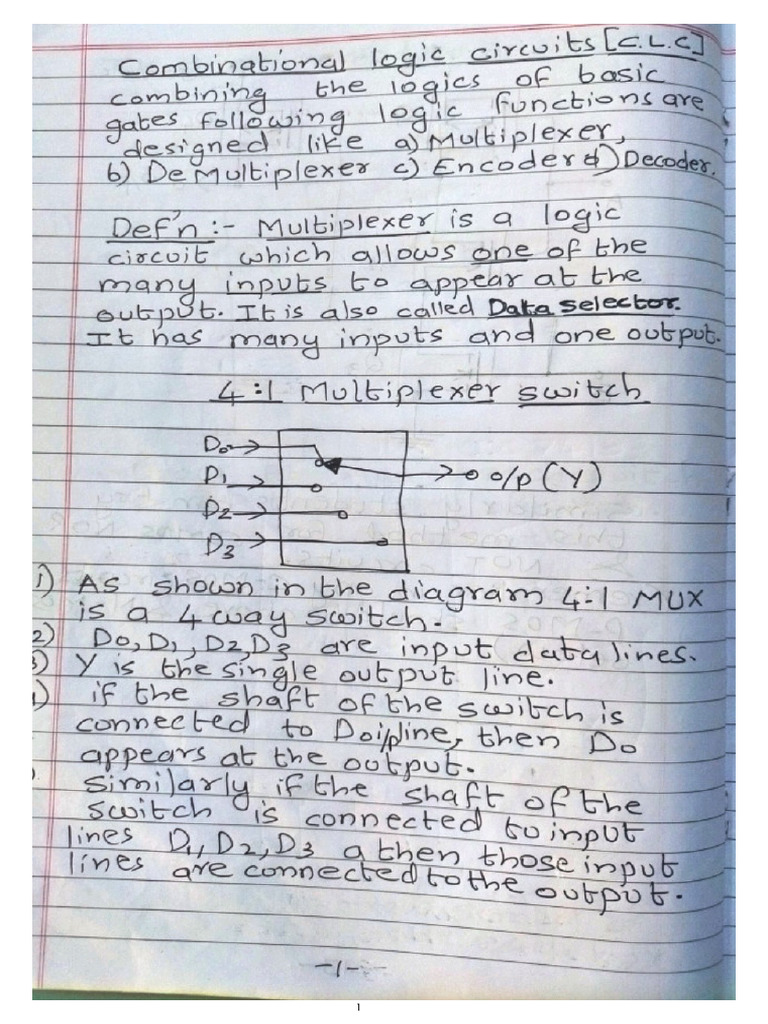 Combinational logic circuits [C.L.C]
combining the logics of basic
gates following logic functions are
designed like a) Multiplexer,
b) DeMultiplexer c) Encoder d) Decoder.
Def'n :- Multiplexer is a logic
circuit which allows one of the
many inputs to appear at the
output. It is also called Data selector.
It has many inputs and one output.
4:1 Multiplexer switch
D0
D1
D2
D3
o/p (Y)
1) As shown in the diagram 4:1 MUX
is a 4 way switch.
2) D0, D1, D2, D3 are input data lines.
3) Y is the single output line.
if the shaft of the switch is
connected to D0 i/p line, then D0
appears at the output.
Similarly if the shaft of the
switch is connected to input
lines D1, D2, D3 a then those input
lines are connected to the output.
-1-
1